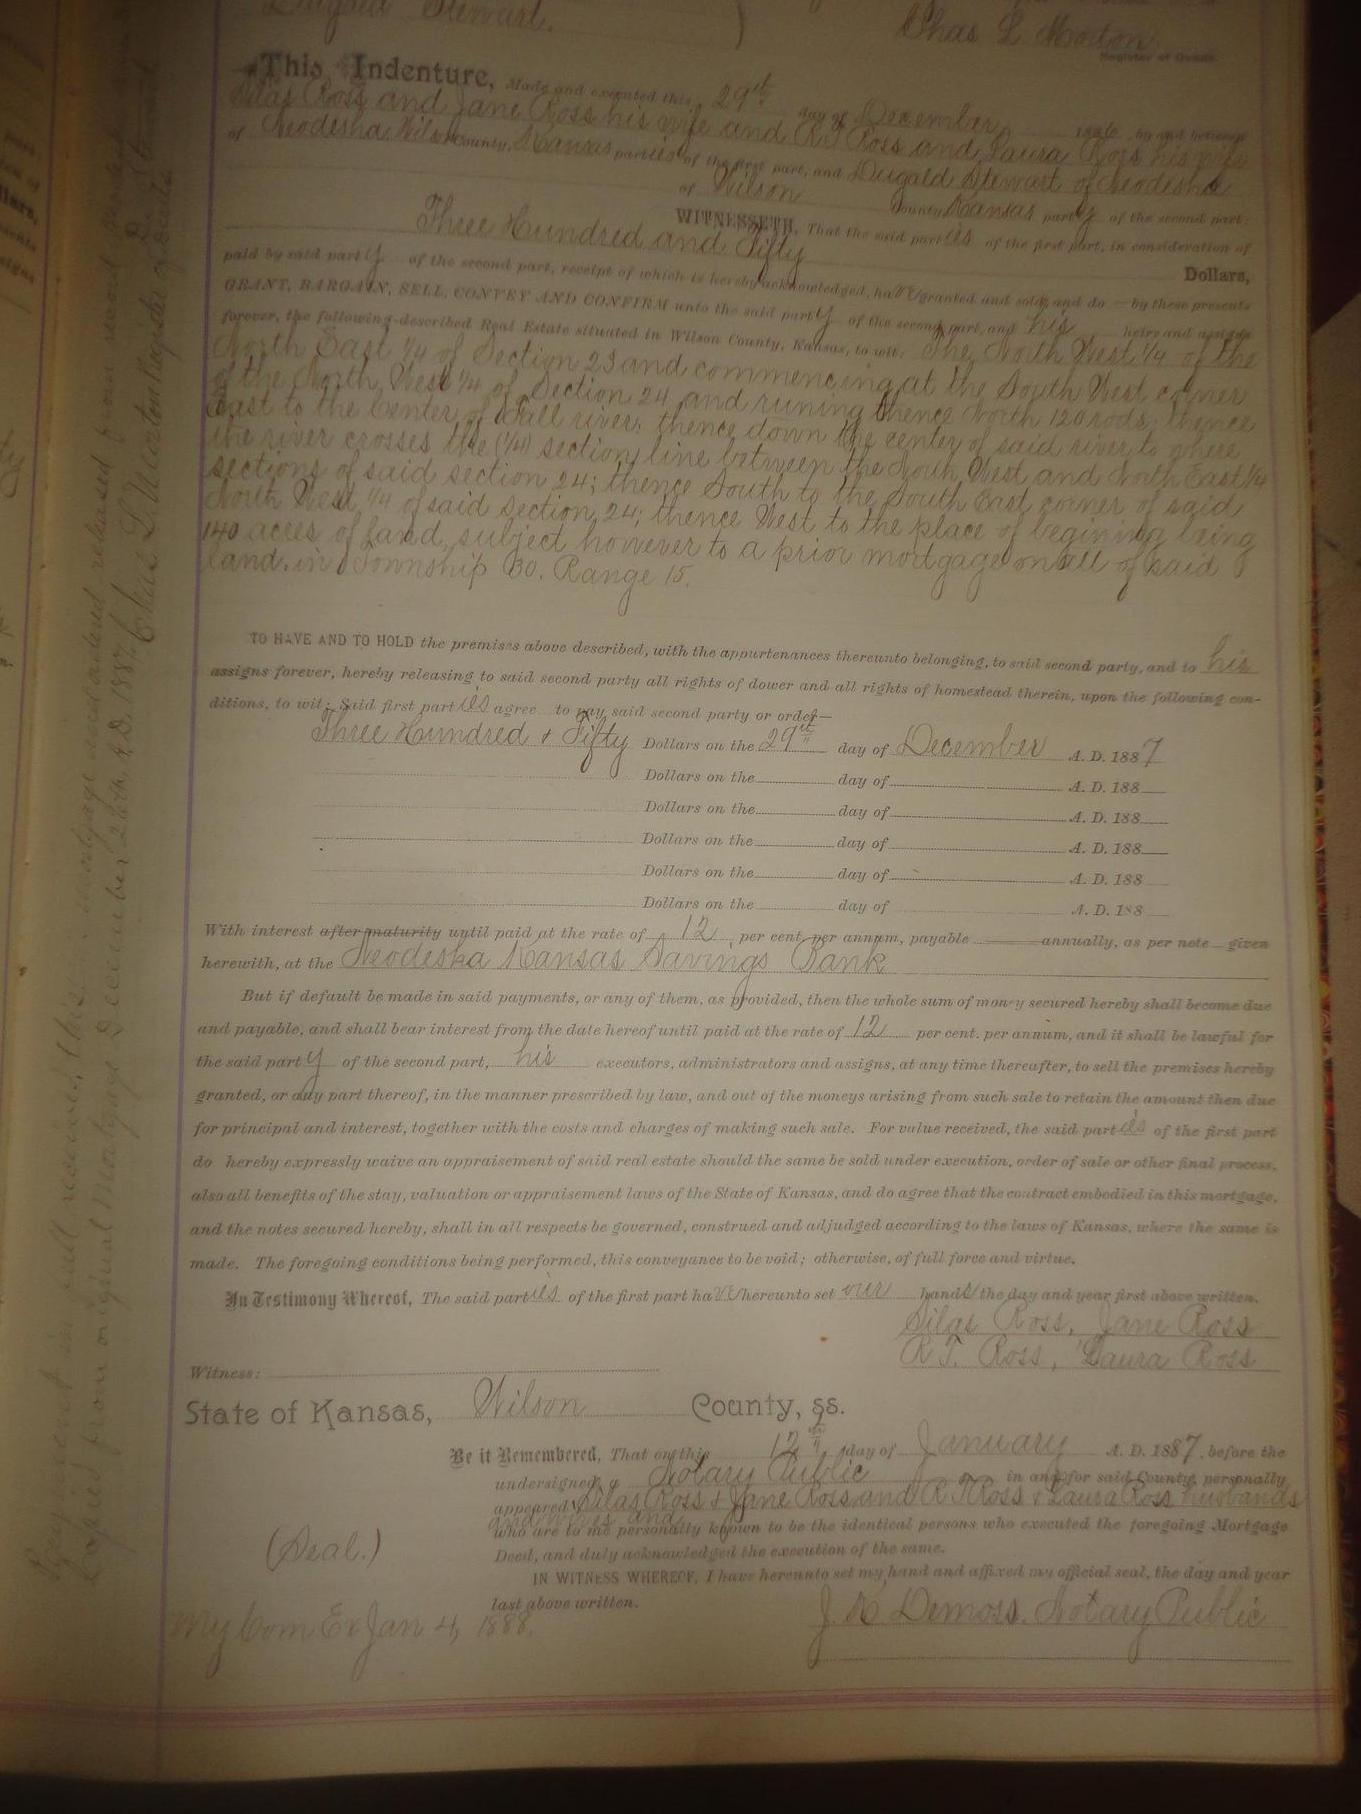 Dugald Stewart.
Chas L Morton
Register of Deeds.
This Indenture, Made and executed this 29th day of December 1886, by and between
Silas Ross and Jane Ross his wife and R T Ross and Laura Ross his wife
of Neodesha Wilson County, Kansas parties of the first part, and Dugald Stewart of Neodesha
of Wilson County Kansas party of the second part:
WITNESSETH, That the said parties of the first part, in consideration of
Three Hundred and Fifty Dollars,
paid by said party of the second part, receipt of which is hereby acknowledged, have granted and sold, and do by these presents
GRANT, BARGAIN, SELL, CONVEY AND CONFIRM unto the said party of the second part, and his heirs and assigns
forever, the following-described Real Estate situated in Wilson County, Kansas, to wit: The North West 1/4 of the
North East 1/4 of Section 23 and commencing at the South West corner
of the North West 1/4 of Section 24 and runing thence North 120 rods; thence
East to the Center of Fall river; thence down the center of said river to where
the river crosses the (1/4) section line between the North West and North East 1/4
sections of said section 24; thence South to the South East corner of said
North West 1/4 of said section 24; thence West to the place of begining being
140 acres of land, subject however to a prior mortgage on all of said
land. in Township 30. Range 15.
TO HAVE AND TO HOLD the premises above described, with the appurtenances thereunto belonging, to said second party, and to his
assigns forever, hereby releasing to said second party all rights of dower and all rights of homestead therein, upon the following con-
ditions, to wit: Said first parties agree to pay said second party or order—
Three Hundred & Fifty Dollars on the 29th day of December A. D. 1887
Dollars on the day of A. D. 188
Dollars on the day of A. D. 188
Dollars on the day of A. D. 188
Dollars on the day of A. D. 188
Dollars on the day of A. D. 188
With interest after maturity until paid at the rate of 12 per cent. per annum, payable annually, as per note given
herewith, at the Neodesha Kansas Savings Bank
But if default be made in said payments, or any of them, as provided, then the whole sum of money secured hereby shall become due
and payable, and shall bear interest from the date hereof until paid at the rate of 12 per cent. per annum, and it shall be lawful for
the said party of the second part, his executors, administrators and assigns, at any time thereafter, to sell the premises hereby
granted, or any part thereof, in the manner prescribed by law, and out of the moneys arising from such sale to retain the amount then due
for principal and interest, together with the costs and charges of making such sale. For value received, the said parties of the first part
do hereby expressly waive an appraisement of said real estate should the same be sold under execution, order of sale or other final process,
also all benefits of the stay, valuation or appraisement laws of the State of Kansas, and do agree that the contract embodied in this mortgage,
and the notes secured hereby, shall in all respects be governed, construed and adjudged according to the laws of Kansas, where the same is
made. The foregoing conditions being performed, this conveyance to be void; otherwise, of full force and virtue.
In Testimony Whereof, The said parties of the first part have hereunto set our hands the day and year first above written.
Silas Ross, Jane Ross
R T. Ross, Laura Ross
Witness:
State of Kansas, Wilson County, ss.
Be it Remembered, That on this 12th day of January A. D. 1887, before the
undersigned, a Notary Public in and for said County, personally
appeared Silas Ross & Jane Ross and R T Ross & Laura Ross husbands
and wives and
who are to me personally known to be the identical persons who executed the foregoing Mortgage
Deed, and duly acknowledged the execution of the same.
(Seal.)
IN WITNESS WHEREOF, I have hereunto set my hand and affixed my official seal, the day and year
last above written.
My Com Ex Jan 4, 1888.
J. K. Demoss. Notary Public
Received in full this mortgage and released from record
Copied from original Mortgage December 26th A.D. 1887. Chas L Morton Register of Deeds